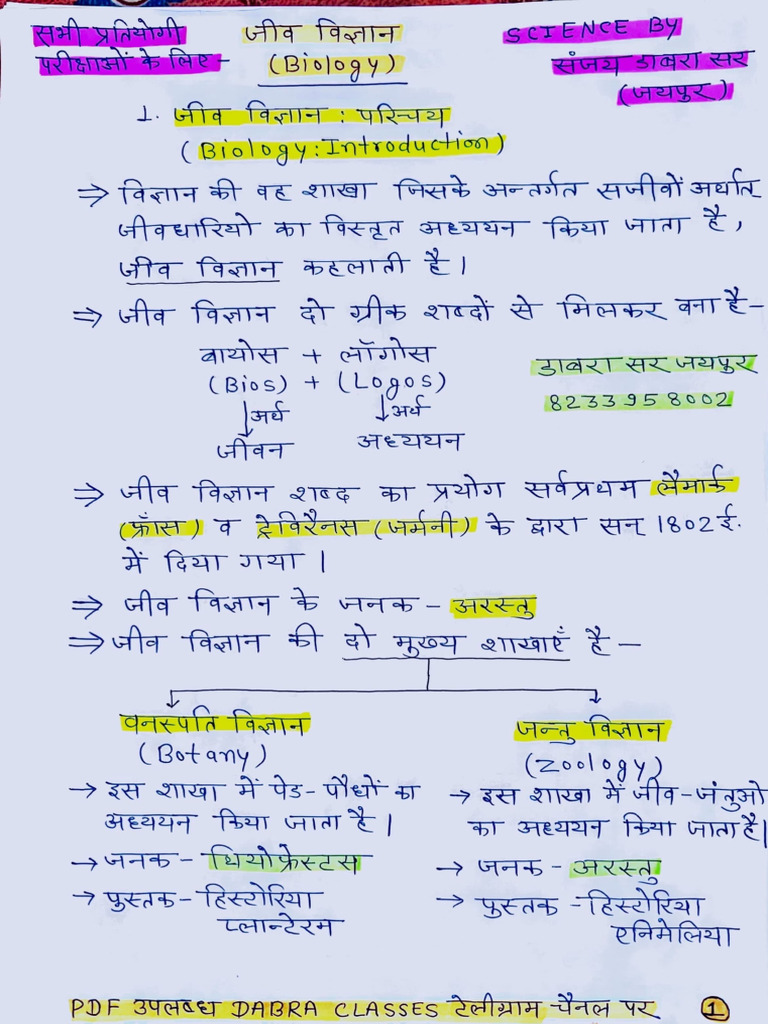 सभी प्रतियोगी
परीक्षाओं के लिए-
जीव विज्ञान
(Biology)
SCIENCE BY
संजय डाबरा सर
(जयपुर)
1. जीव विज्ञान : परिचय
(Biology:Introduction)
⇒ विज्ञान की वह शाखा जिसके अन्तर्गत सजीवों अर्थात्
जीवधारियो का विस्तृत अध्ययन किया जाता है,
जीव विज्ञान कहलाती है।
⇒ जीव विज्ञान दो ग्रीक शब्दों से मिलकर बना है-
बायोस + लॉगोस
(Bios) + (Logos)
↓अर्थ ↓अर्थ
जीवन अध्ययन
डाबरा सर जयपुर
8233958002
⇒ जीव विज्ञान शब्द का प्रयोग सर्वप्रथम लैमार्क
(फ्राँस) व ट्रेविरैनस (जर्मनी) के द्वारा सन् 1802 ई.
में दिया गया।
⇒ जीव विज्ञान के जनक - अरस्तु
⇒ जीव विज्ञान की दो मुख्य शाखाएँ है -
वनस्पति विज्ञान
(Botany)
→ इस शाखा में पेड-पौधों का
अध्ययन किया जाता है।
→ जनक - थियोफ्रेस्टस
→ पुस्तक - हिस्टोरिया
प्लान्टेरम
जन्तु विज्ञान
(Zoology)
→ इस शाखा में जीव-जंतुओ
का अध्ययन किया जाता है।
→ जनक - अरस्तु
→ पुस्तक - हिस्टोरिया
एनिमेलिया
PDF उपलब्ध DABRA CLASSES टेलीग्राम चैनल पर 1